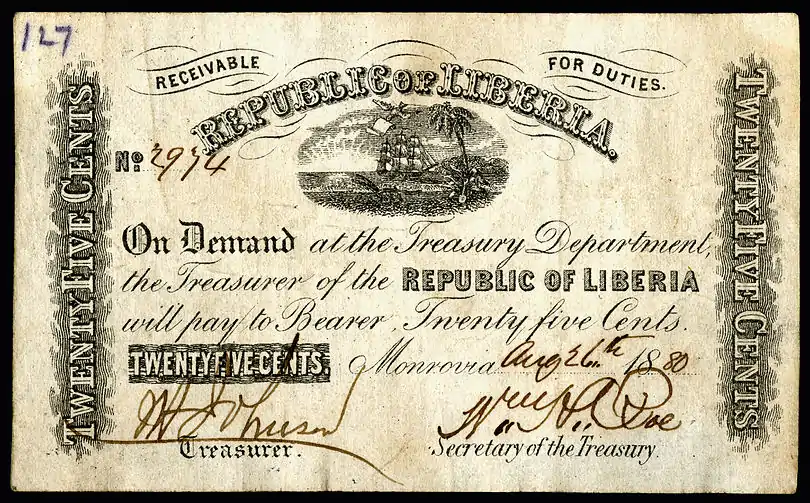 127
RECEIVABLE FOR DUTIES.
REPUBLIC OF LIBERIA.
TWENTY FIVE CENTS
No 2974
On Demand at the Treasury Department,
the Treasurer of the REPUBLIC OF LIBERIA
will pay to Bearer, Twenty five Cents.
TWENTY FIVE CENTS. Monrovia Aug 26th 1880
Johnson
Treasurer. Secretary of the Treasury.
TWENTY FIVE CENTS